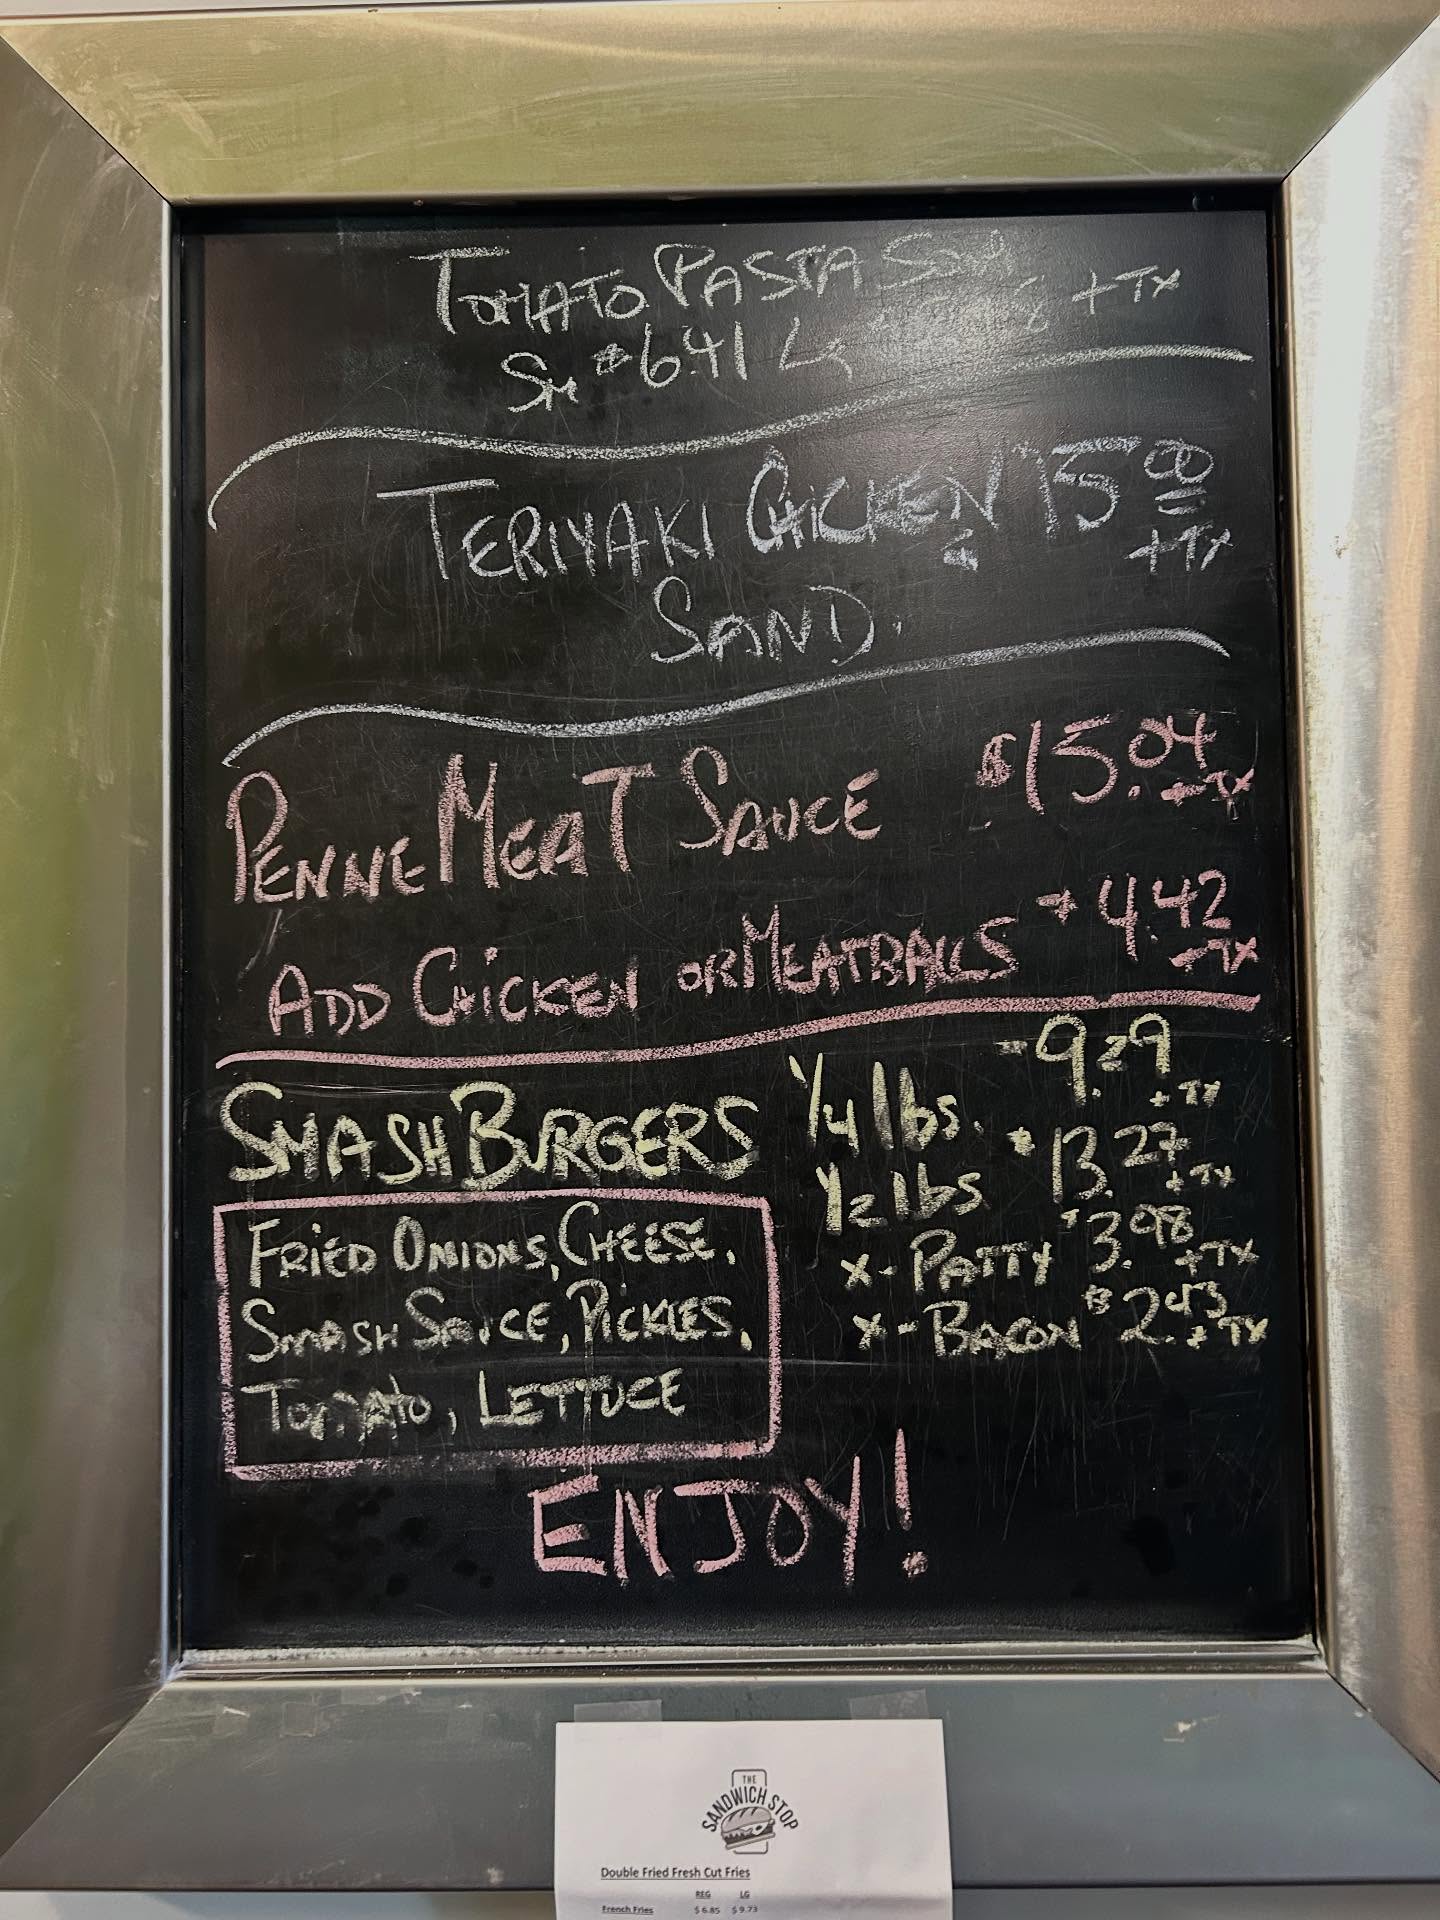 TOMATO PASTA
SM $6.41 LG + TX
TERIYAKI CHICKEN $15.00
+ TX
SAND.
PENNE MEAT SAUCE $15.04
+ TX
ADD CHICKEN OR MEATBALLS + 4.42
+ TX
SMASH BURGERS
1/4 lbs. $9.29 + TX
1/2 lbs $13.27 + TX
X-PATTY $3.98 + TX
X-BACON + TX
FRIED ONIONS, CHEESE,
SMASH SAUCE, PICKLES,
TOMATO, LETTUCE
ENJOY!
THE
SANDWICH STOP
Double Fried Fresh Cut Fries
REG LG
French Fries $6.85 $9.73